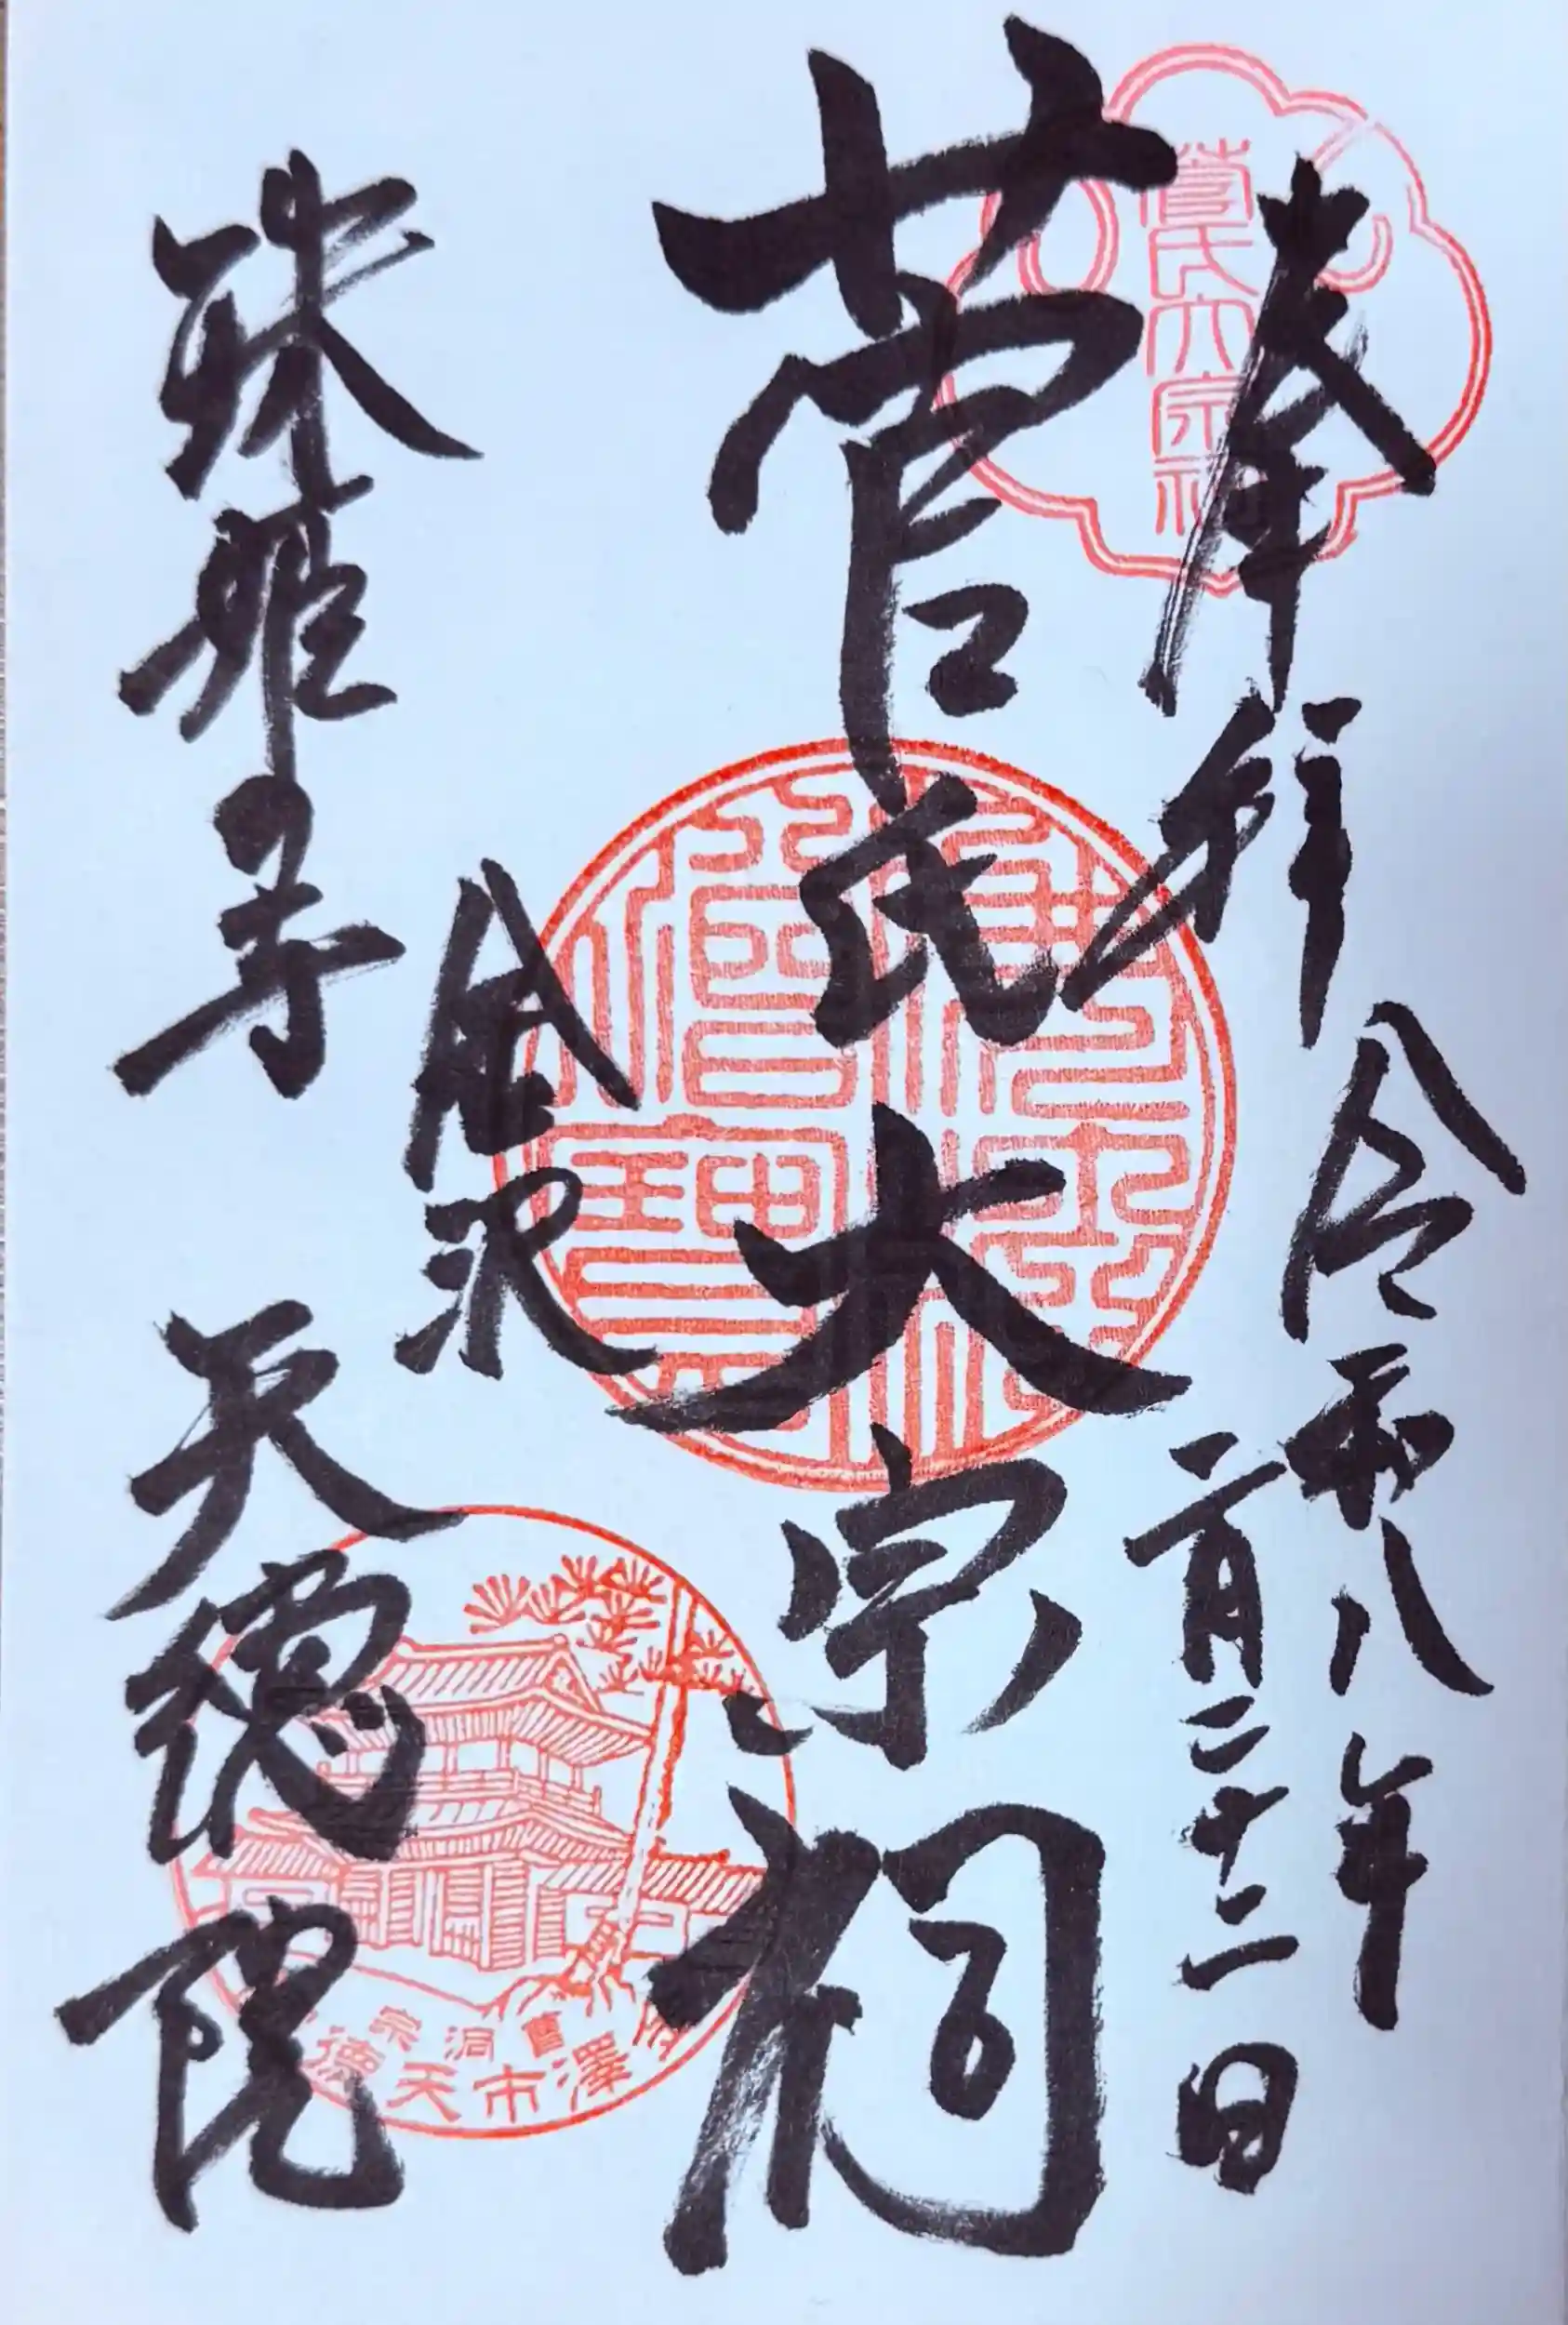 奉拝
令和八年
二月二十二日
菅氏大宗祠
金沢
珠姫寺
天徳院
菅氏大宗祠
佛法僧寶
曹洞宗
金澤市天徳